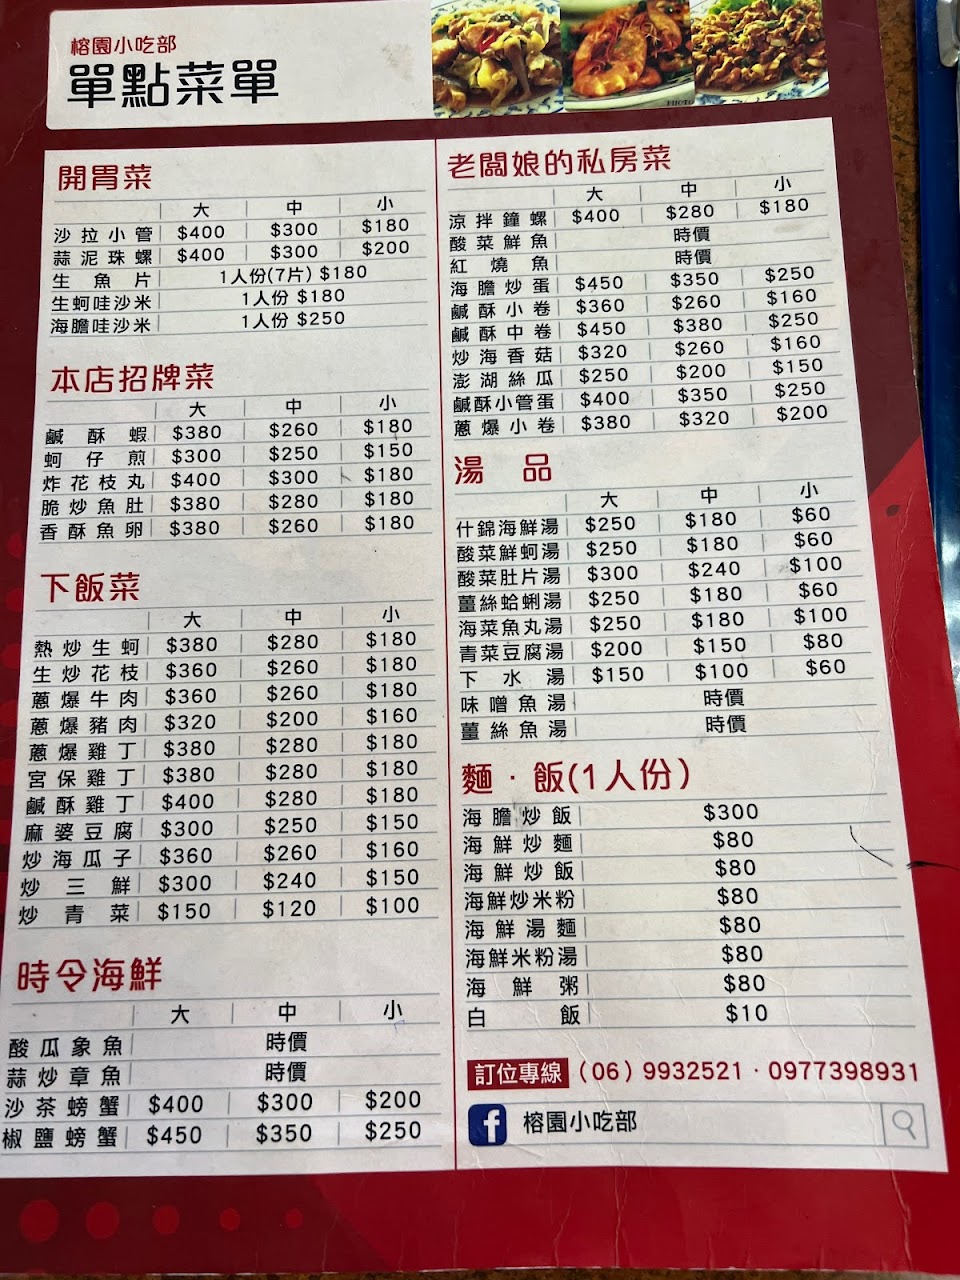 榕園小吃部
單點菜單
開胃菜
大 中 小
沙拉小管 $400 $300 $180
蒜泥珠螺 $400 $300 $200
生魚片 1人份(7片) $180
生蚵哇沙米 1人份 $180
海膽哇沙米 1人份 $250
本店招牌菜
大 中 小
鹹酥蝦 $380 $260 $180
蚵仔煎 $300 $250 $150
炸花枝丸 $400 $300 $180
脆炒魚肚 $380 $280 $180
香酥魚卵 $380 $260 $180
下飯菜
大 中 小
熱炒生蚵 $380 $280 $180
生炒花枝 $360 $260 $180
蔥爆牛肉 $360 $260 $180
蔥爆豬肉 $320 $200 $160
蔥爆雞丁 $380 $280 $180
宮保雞丁 $380 $280 $180
鹹酥雞丁 $400 $280 $180
麻婆豆腐 $300 $250 $150
炒海瓜子 $360 $260 $160
炒三鮮 $300 $240 $150
炒青菜 $150 $120 $100
時令海鮮
大 中 小
酸瓜象魚 時價
蒜炒章魚 時價
沙茶螃蟹 $400 $300 $200
椒鹽螃蟹 $450 $350 $250
老闆娘的私房菜
大 中 小
涼拌鐘螺 $400 $280 $180
酸菜鮮魚 時價
紅燒魚 時價
海膽炒蛋 $450 $350 $250
鹹酥小卷 $360 $260 $160
鹹酥中卷 $450 $380 $250
炒海香菇 $320 $260 $160
澎湖絲瓜 $250 $200 $150
鹹酥小管蛋 $400 $350 $250
蔥爆小卷 $380 $320 $200
湯品
大 中 小
什錦海鮮湯 $250 $180 $60
酸菜鮮蚵湯 $250 $180 $60
酸菜肚片湯 $300 $240 $100
薑絲蛤蜊湯 $250 $180 $60
海菜魚丸湯 $250 $180 $100
青菜豆腐湯 $200 $150 $80
下水湯 $150 $100 $60
味噌魚湯 時價
薑絲魚湯 時價
麵·飯(1人份)
海膽炒飯 $300
海鮮炒麵 $80
海鮮炒飯 $80
海鮮炒米粉 $80
海鮮湯麵 $80
海鮮米粉湯 $80
海鮮粥 $80
白飯 $10
訂位專線 (06) 9932521·0977398931
f 榕園小吃部